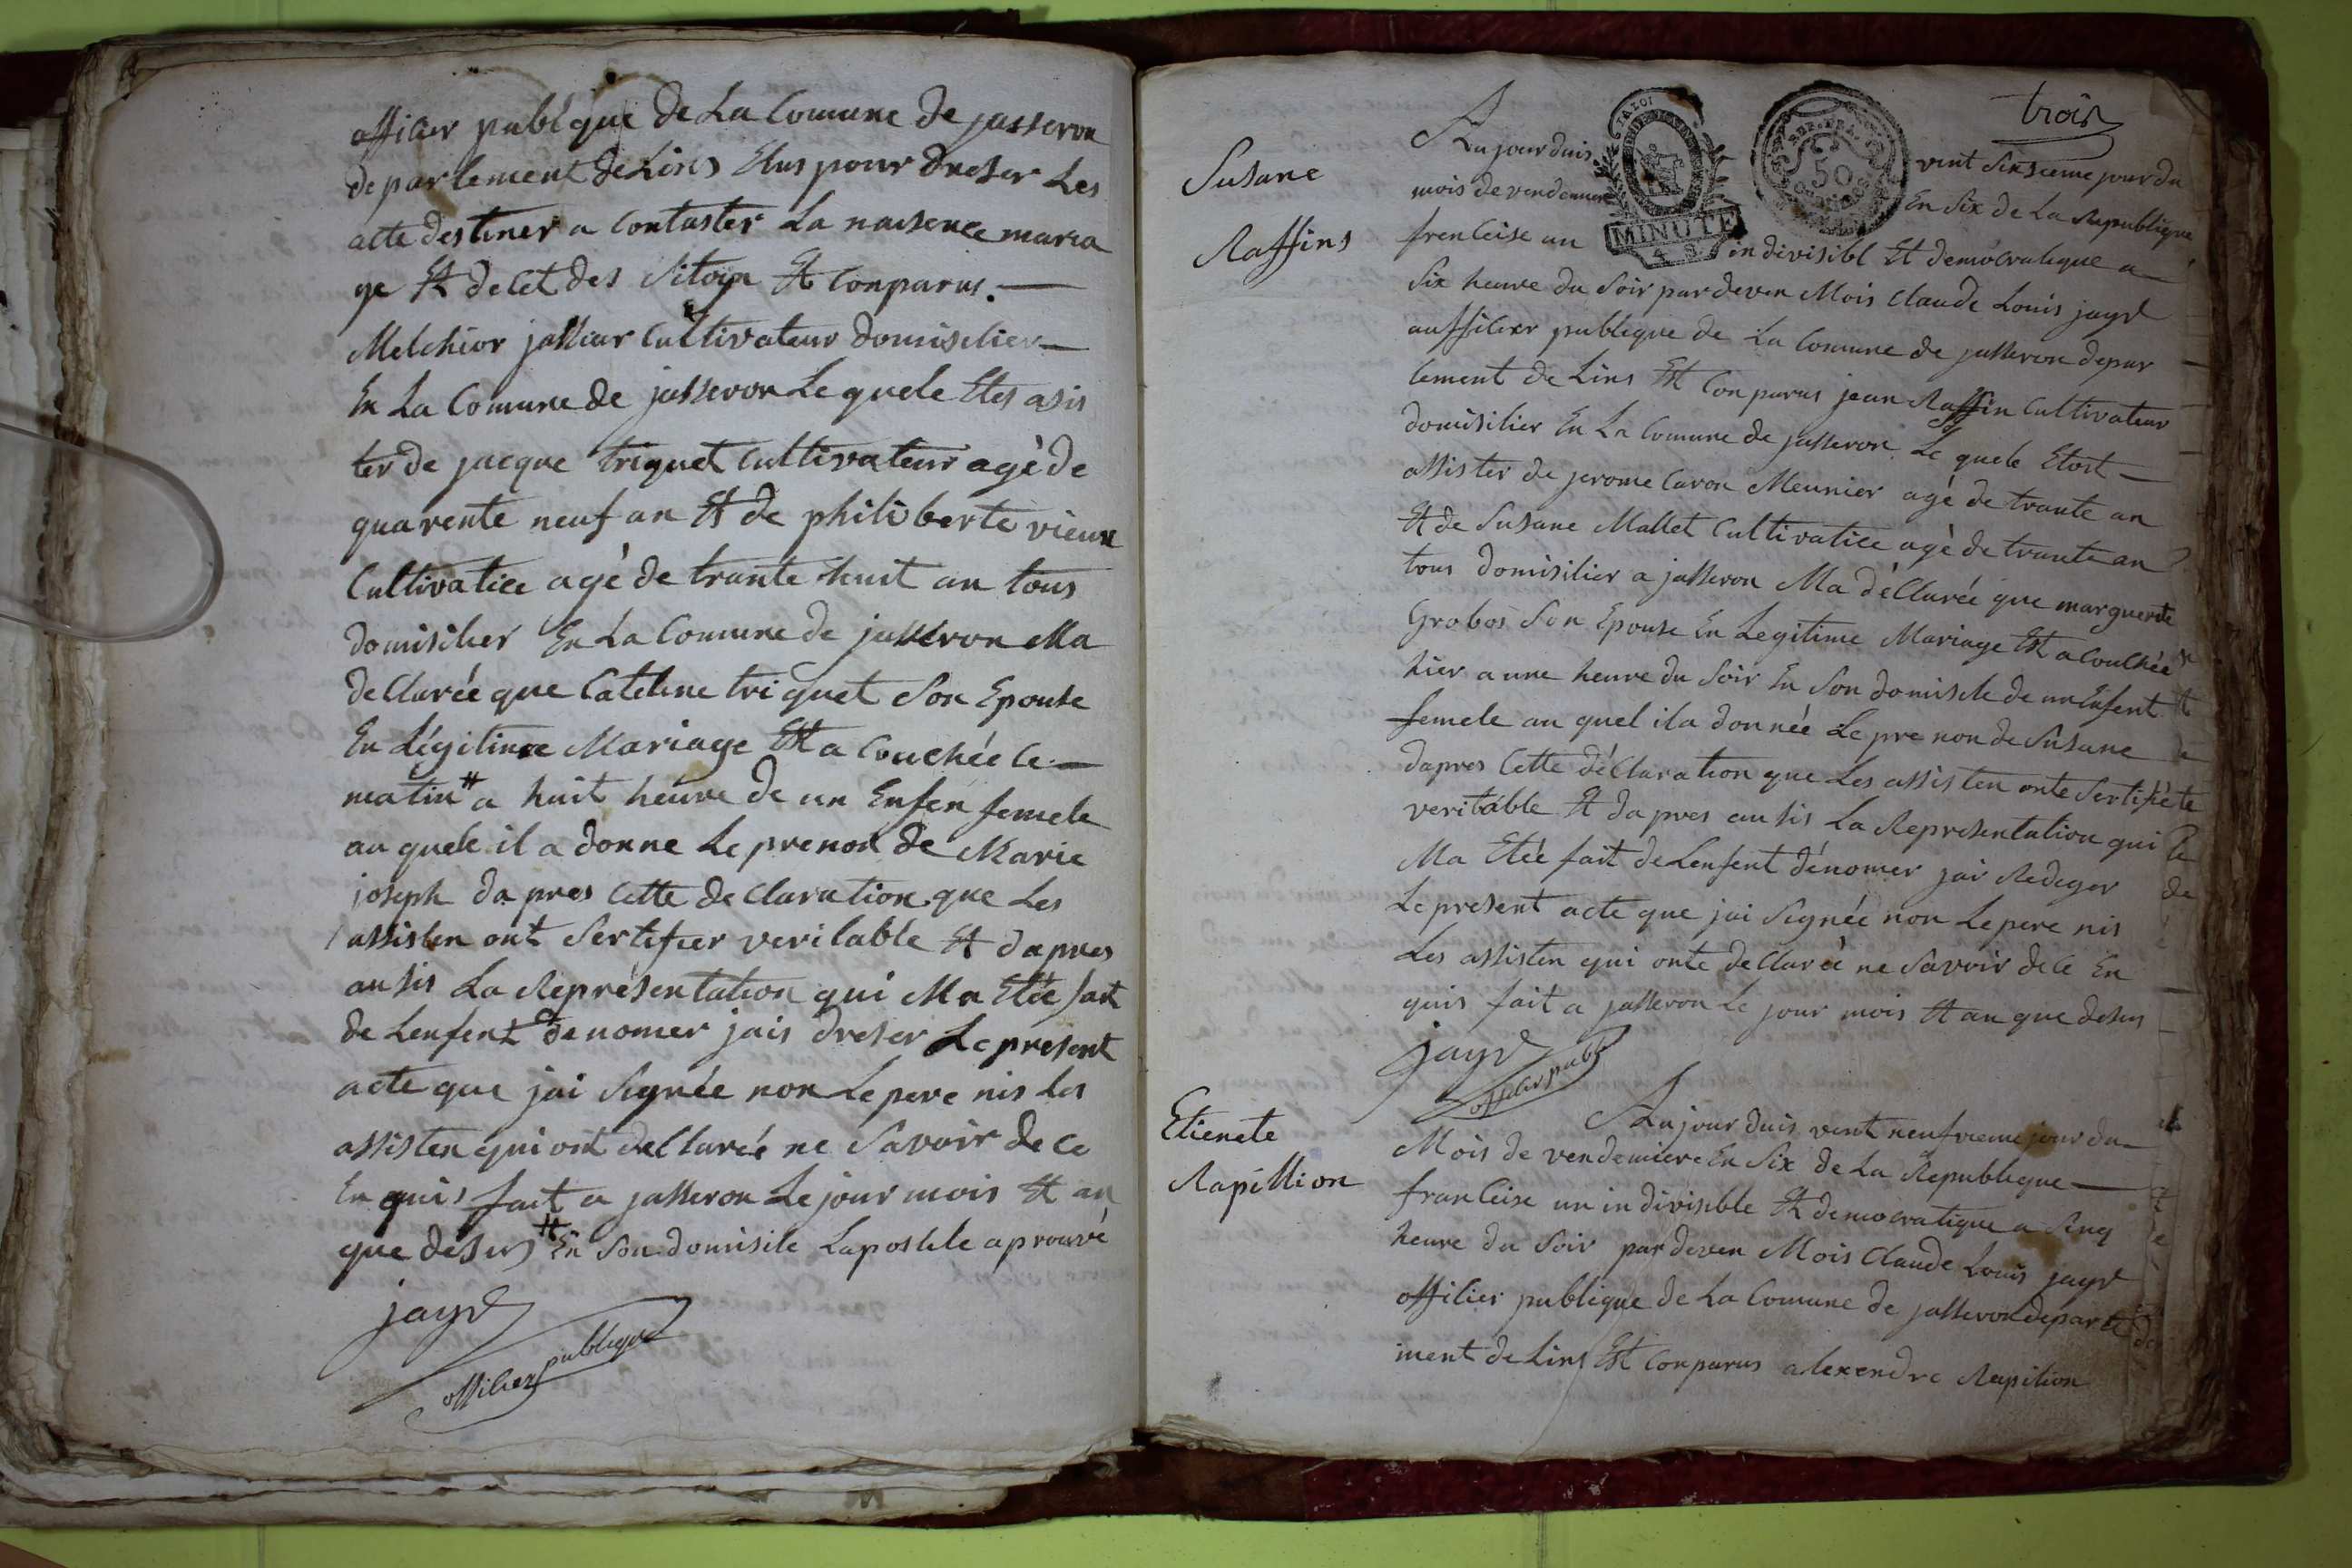 officier publéque de La Comune de jasseron
departement de Lins Elus pour dreser Les
acte destiner a Contaster La naisence maria
ge Et decet des Sitoyn Et Conparus. —
Melchior jasseur Cultivateur domisilier —
En La Comune de jasseron Le quele Etes asis
ter de jacque triquet Cultivateur agè de
quarente neuf an Et de philiberte vieux
Cultivatice agè de trante huit an tous
domisilier En La Comune de jasseron Ma
declarée que Cateline triquet Son Epouse
En Légitime Mariage Est a Couchée Ce —
matin # a huit heure de un Enfen femele
au quele il a donne Le prenon de Marie
joseph dapres Cette declaration que Les
assisten ont Sertifier veritable Et dapres
ausis La Représentation qui Ma Etée fait
de Lenfent denomer jais dreser Le present
acte que jai Signée non Le pere nis Les
assisten qui ont declarée ne Savoir de ce
En quis fait a jasseron Le jour mois Et an
que desus # En Son domisile Lapostile aprouvé
jayr
officier publique
trois
Susane
Raffins
LA LOI
MINUTE
REP. FRA.
50
Aujourduis vint Sixsieme jour du
mois de vendemiere En Six de La Republique
frenceise un indivisibl Et democratique a —
Six heure du Soir pardeven Mois Claude Louis jayr
aufficier publéque de La Comune de jasseron depar
tement de Lins Est Conparus jean Raffin Cultivateur
domisilier En La Comune de jasseron Le quele Etost —
assister de jerome Caron Meunier agè de trante an
Et de Susane Mallet Cultivatice agè de trante an
tous domisilier a jasseron Ma dèClarée que marguerite
Grobos Son Epouse En Legitime Mariage Est a Couchée
hier a une heure du Soir En Son domisile de un Enfent
femele au quel il a donnée Le prenon de Susane
dapres Cette déClaration que Les assisten onte Sertifiè
veritable Et dapres ausis La Representation qui
Ma Etée fait de Lenfent dénomer jai Rediger
Le present acte que jai Signée non Le pere nis
Les assisten qui onte declarè ne Savoir de ce En
quis fait a jasseron Le jour mois Et an que desus
jayr
officier publ
Etienete
Rapillion
Aujourduis vent neufvieme jour du —
Mois de vendemiere En Six de La Republeque —
franceise un indivisible Et democratique a Sinq
heure du Soir pardeven Mois Claude Louis jayr
officier publique de La Comune de jasseron departe
ment de Lins Est Conparus alexendre Rapilion